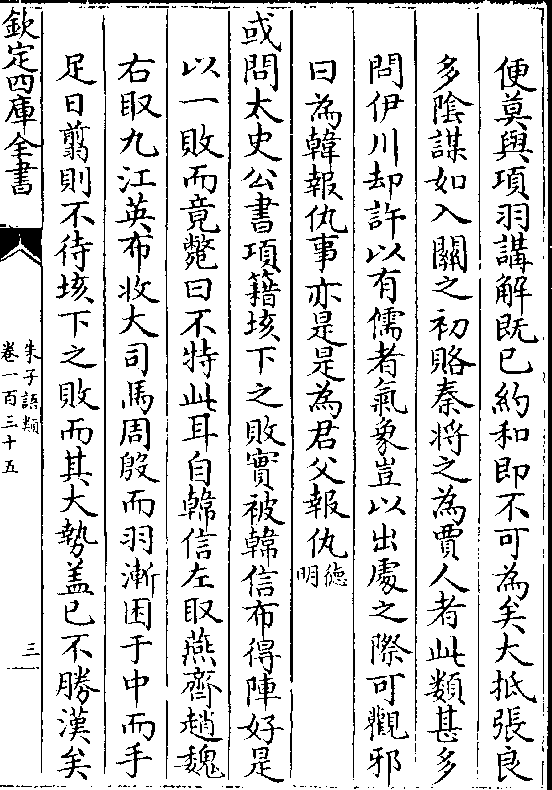 便莫與項羽講解既已約和即不可為矣大抵張良
多陰謀如入關之初賂秦將之為賈人者此類甚多
問伊川却許以有儒者氣象豈以出處之際可觀邪
曰為韓報仇事亦是是為君父報仇德明
或問太史公書項籍垓下之敗實被韓信布得陣好是
以一敗而竟斃曰不特此耳自韓信左取燕齊趙魏
右取九江英布收大司馬周殷而羽漸困于中而手
足日翦則不待垓下之敗而其大勢盖已不勝漢矣
欽定四庫全書
朱子語類
卷一百三十五
三